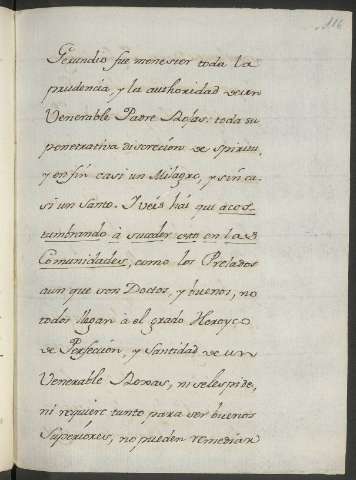 116
Gerundio fue menester toda la
prudencia, y la authoridad de un
Venerable Padre Roxas: toda su
penetrativa discreción de spiritu,
y en fin casi un Milagro, y sin ca-
si un Santo. I veis hai que acos-
tumbrando à suceder esto en las
Comunidades, como los Prelados
aun que son Doctos, y buenos, no
todos llegan à el grado Heroyco
de Perfección, y Santidad de un
Venerable Roxas, ni se les pide,
ni requiere tanto para ser buenos
Superióres, no pueden remediar